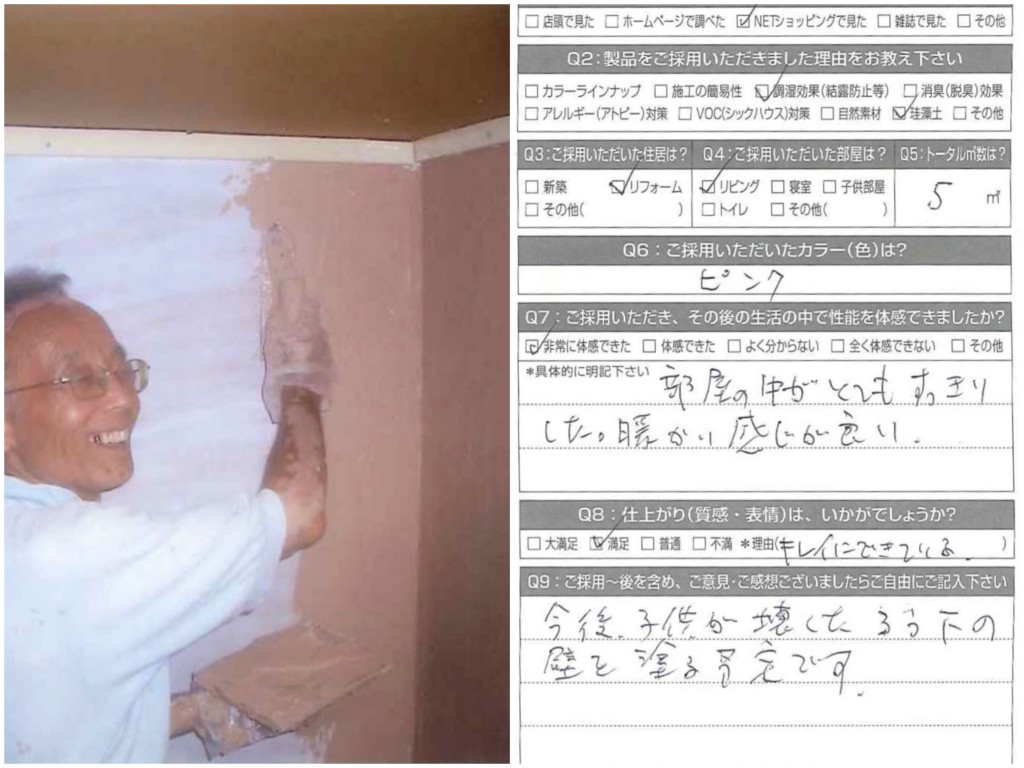 □店頭で見た □ホームページで調べた ☑NETショッピングで見た □雑誌で見た □その他
Q2:製品をご採用いただきました理由をお教え下さい
□カラーラインナップ □施工の簡易性 ☑調湿効果(結露防止等) □消臭(脱臭)効果
□アレルギー(アトピー)対策 □VOC(シックハウス)対策 □自然素材 ☑珪藻土 □その他
Q3:ご採用いただいた住居は? Q4:ご採用いただいた部屋は? Q5:トータル㎡数は?
□新築 ☑リフォーム ☑リビング □寝室 □子供部屋 5 ㎡
□その他( ) □トイレ □その他( )
Q6:ご採用いただいたカラー(色)は?
ピンク
Q7:ご採用いただき、その後の生活の中で性能を体感できましたか?
☑非常に体感できた □体感できた □よく分からない □全く体感できない □その他
*具体的に明記下さい 部屋の中がとてもすっきり
した。暖かい感じが良い.
Q8:仕上がり(質感・表情)は、いかがでしょうか?
□大満足 ☑満足 □普通 □不満 *理由(キレイにできている. )
Q9:ご採用〜後を含め、ご意見・ご感想ございましたらご自由にご記入下さい
今後、子供が壊した 下の
壁を塗る予定です.